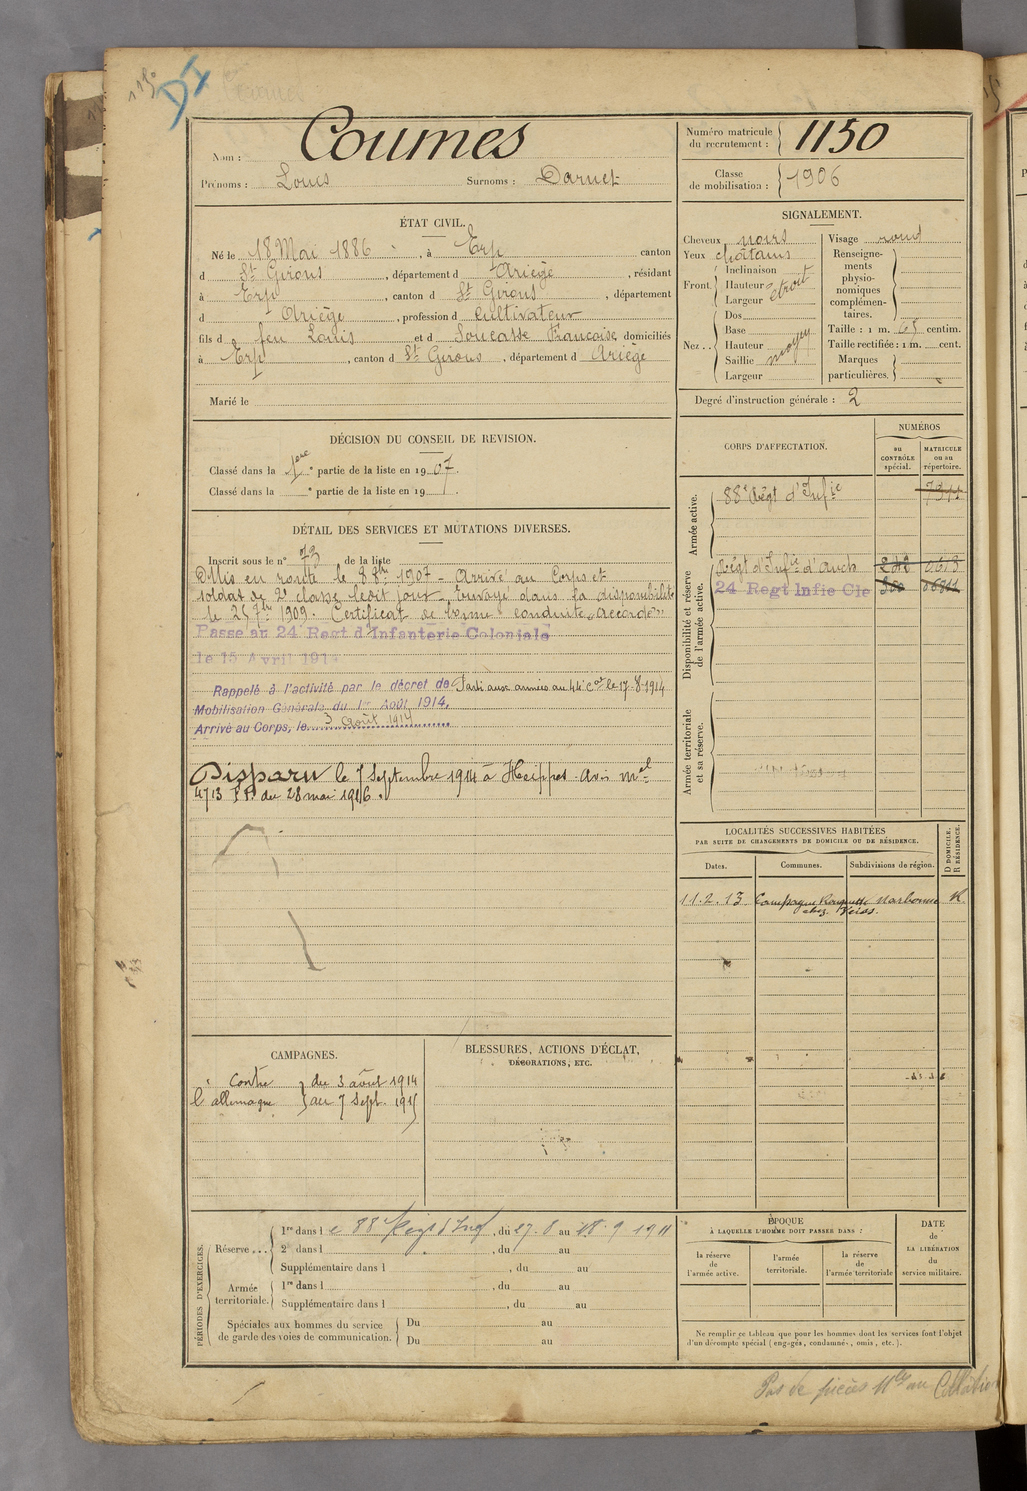 1150
DI
Nom : Coumes
Prénoms : Louis Surnoms : Darnet
Numéro matricule du recrutement : 1150
Classe de mobilisation : 1906
ÉTAT CIVIL.
Né le 18 Mai 1886, à Erp canton
d St Girons, département d Ariège, résidant
à Erp, canton d St Girons, département
d Ariège, profession d cultivateur
fils d feu Louis et d Soucasse Françoise domiciliés
à Erp, canton d St Girons, département d Ariège
Marié le
SIGNALEMENT.
Cheveux noirs
Yeux châtains
Front. Inclinaison
Hauteur étroit
Largeur
Nez.. Dos
Base
Hauteur moyen
Saillie
Largeur
Visage rond
Renseignements physionomiques complémentaires.
Taille : 1 m. 65 centim.
Taille rectifiée : 1 m. cent.
Marques particulières.
Degré d'instruction générale : 2
DÉCISION DU CONSEIL DE REVISION.
Classé dans la 1ere partie de la liste en 1907.
Classé dans la e partie de la liste en 19 .
DÉTAIL DES SERVICES ET MUTATIONS DIVERSES.
Inscrit sous le n° 73 de la liste
Mis en route le 8 8bre 1907 - Arrivé au Corps et
soldat de 2e classe ledit jour. Envoyé dans la disponibilité
le 25 7bre 1909. Certificat de bonne conduite "Accordé"
Passé au 24 Regt d'Infanterie Coloniale
le 15 Avril 191
Rappelé à l'activité par le décret de
Mobilisation Générale du 1er Août 1914.
Arrivé au Corps, le 3 Août 1914
Parti aux armées au 44e Cal le 17-8-1914
Disparu le 7 Septembre 1914 à Heippes. Avis mel
4713 P.P. du 28 mai 1916.
CORPS D'AFFECTATION.
NUMÉROS
au CONTRÔLE spécial.
MATRICULE ou au répertoire.
Armée active.
88e Régt d'Infie 7311
Disponibilité et réserve de l'armée active.
Régt d'Infie d'Auch
24 Regt Infie Cle
Armée territoriale et sa réserve.
LOCALITÉS SUCCESSIVES HABITÉES
PAR SUITE DE CHANGEMENTS DE DOMICILE OU DE RÉSIDENCE.
Dates.
Communes.
Subdivisions de région.
D DOMICILE. R RÉSIDENCE.
11.2.13 Campagne Rouquette Narbonne R
chez
CAMPAGNES.
Contre du 3 août 1914
l'allemagne au 7 Sept. 1915
BLESSURES, ACTIONS D'ÉCLAT,
DÉCORATIONS, ETC.
PÉRIODES D'EXERCICES.
Réserve... 1re dans le 88e Régt d'Inf, du 27.8 au 18.9.1911
2e dans l , du au
Supplémentaire dans l , du au
Armée territoriale. 1re dans l , du au
Supplémentaire dans l , du au
Spéciales aux hommes du service de garde des voies de communication. Du au
Du au
ÉPOQUE
À LAQUELLE L'HOMME DOIT PASSER DANS :
la réserve de l'armée active.
l'armée territoriale.
la réserve de l'armée territoriale
DATE de LA LIBÉRATION du service militaire.
Ne remplir ce tableau que pour les hommes dont les services font l'objet
d'un décompte spécial (engagés, condamnés, omis, etc.).
Pas de pièces Mles au